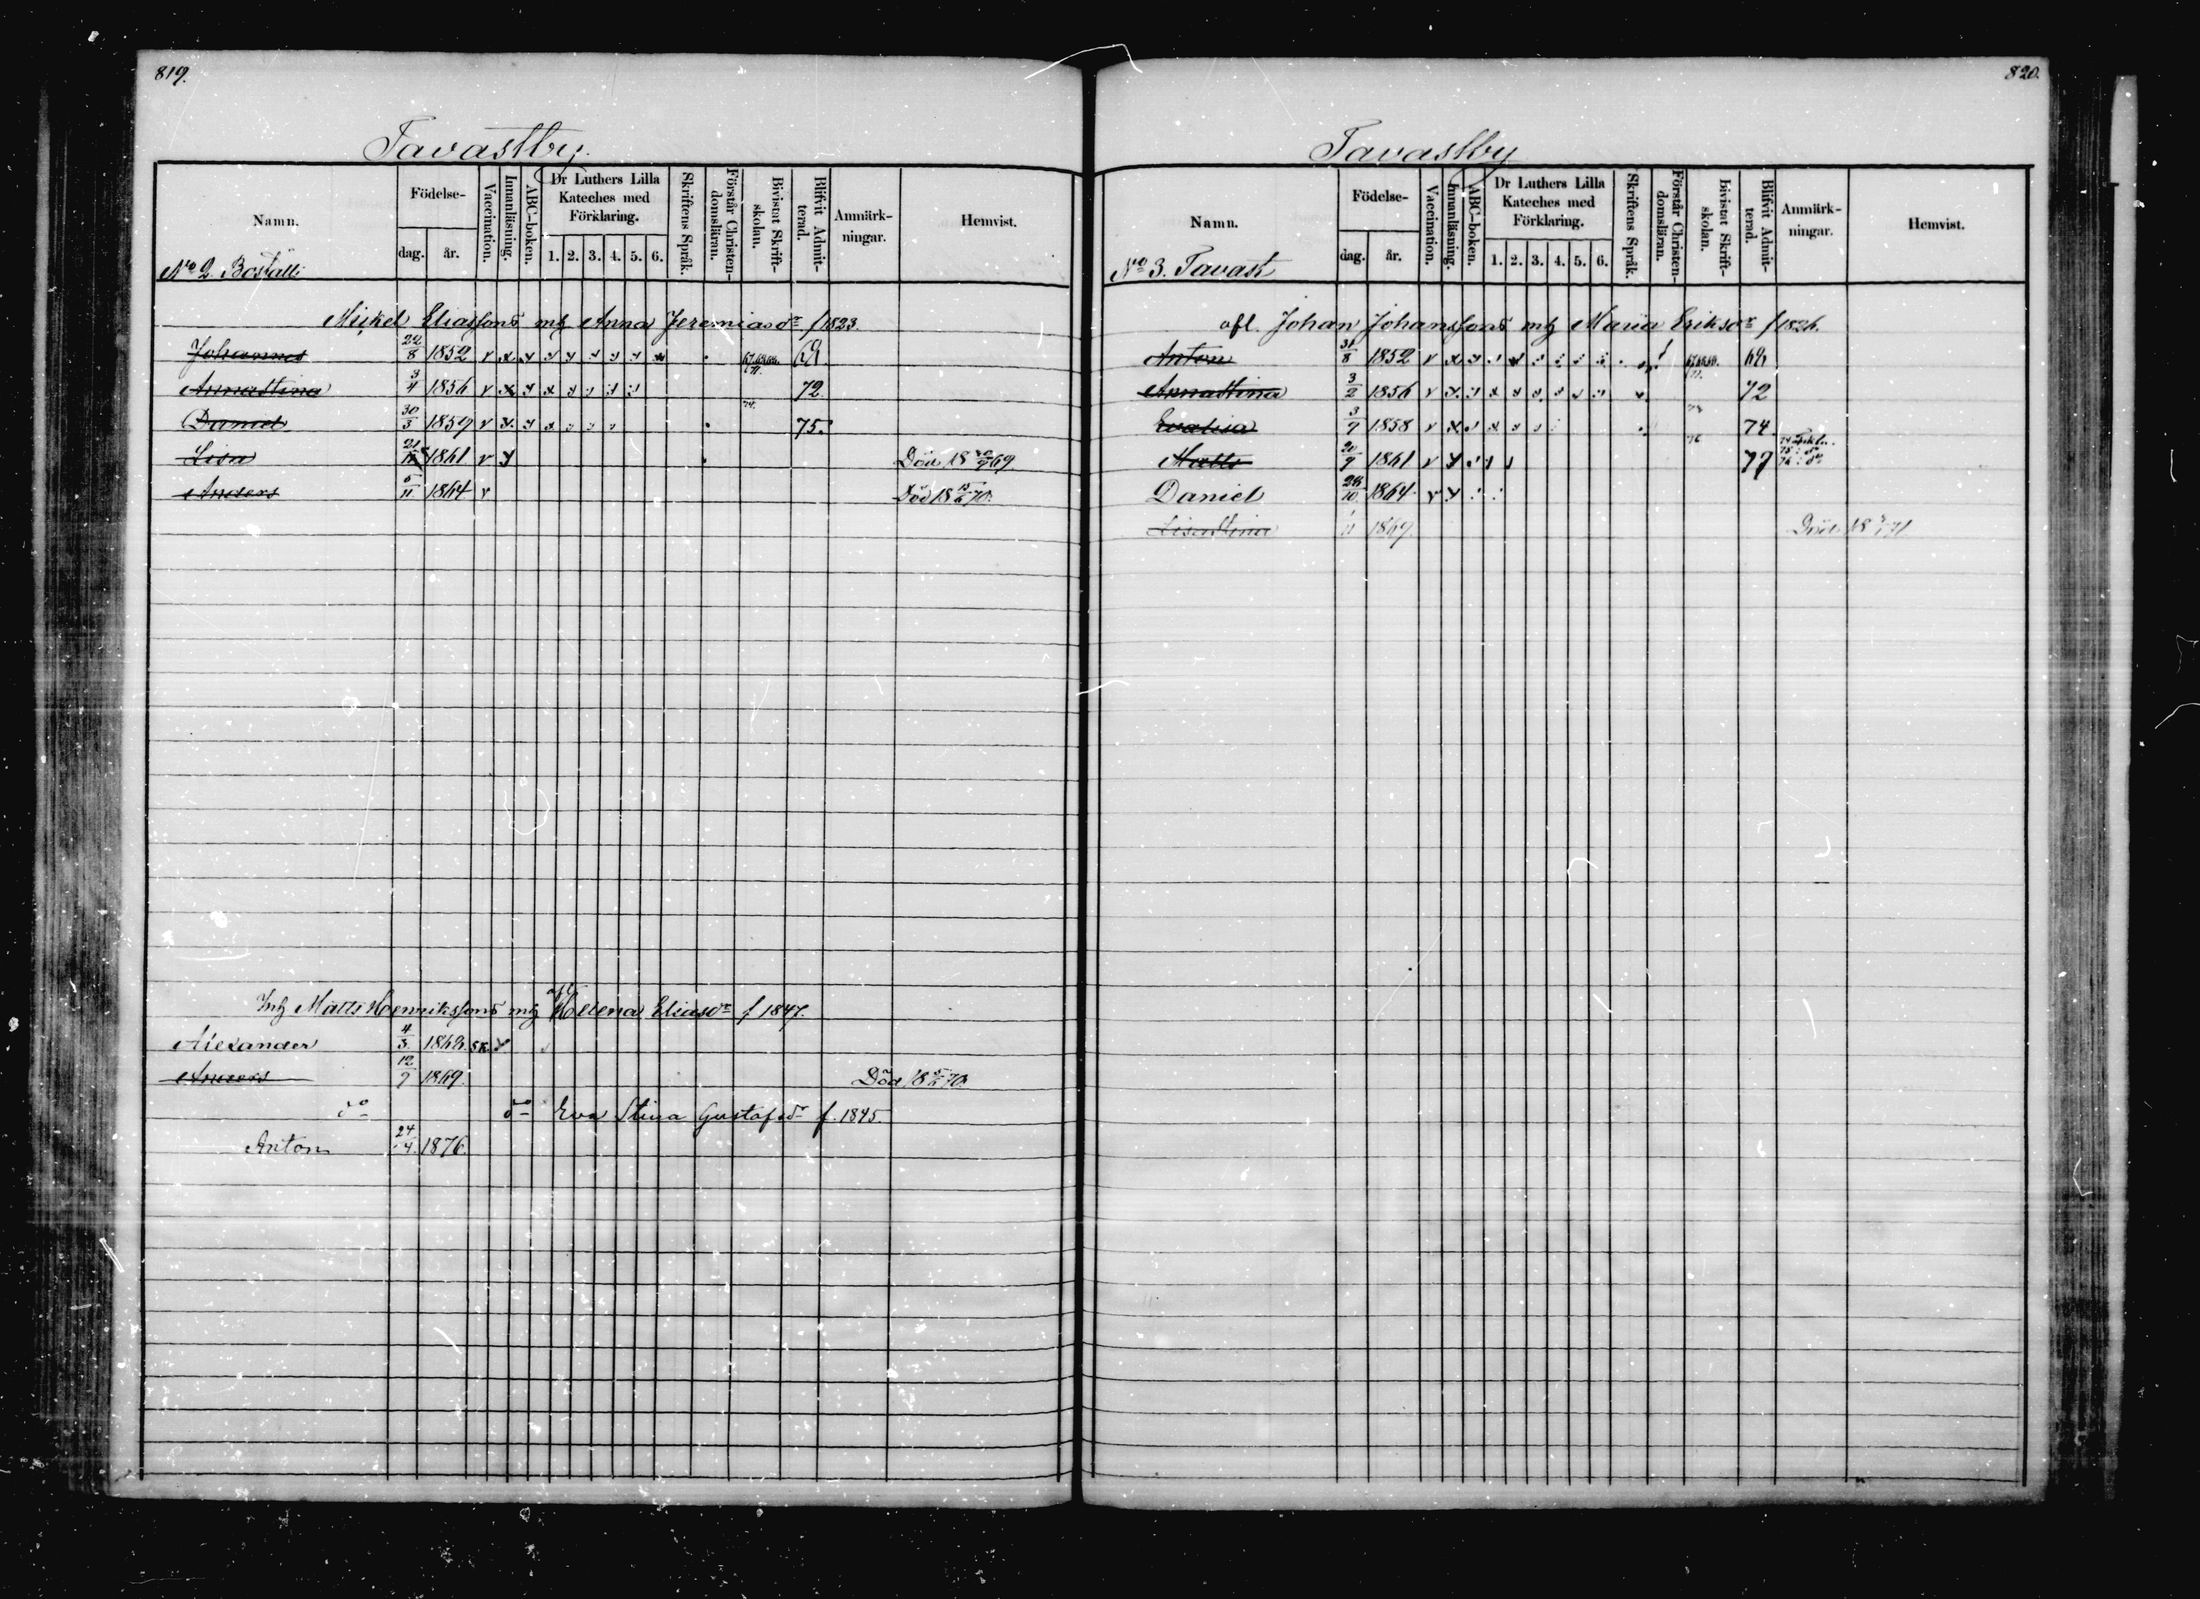 819.
Tavastby.
Namn. Födelse- dag. år. Vaccination. Innanläsning. ABC-boken. Dr Luthers Lilla Kateches med Förklaring. 1. 2. 3. 4. 5. 6. Skriftens Språk. Förstår Christen-domsläran. Bivistat Skrift-skolan. Blifvit Admit-terad. Anmärk-ningar. Hemvist.
No 2. Boställi
Mickel Eliassons mh Anna Jeremiasdr f 1823.
Johannes 22/8 1852 v x
Annastina 3/4 1856 v x 72.
Daniel 30/3 1859 v x 74. 75.
Lisa 1861 v x Död 18 69
Anders 5/11 1864 v Död 18 70.
Inh Matts Henrikssons mh Helena Eliasdr f 1847.
Alexander 4/3 1868. sk. x
Anders 12/9 1869. Död 18 70.
do do Eva Stina Gustafsdr f. 1845.
Anton 24/4. 1876.
820.
Tavastby
Namn. Födelse- dag. år. Vaccination. Innanläsning. ABC-boken. Dr Luthers Lilla Kateches med Förklaring. 1. 2. 3. 4. 5. 6. Skriftens Språk. Förstår Christen-domsläran. bivistat Skrift-skolan. Blifvit Admit-terad. Anmärk-ningar. Hemvist.
No 3. Tavast
afl. Johan Johanssons mh Maria Eriksdr f 1826.
Anton 31/8 1852 v x
Annastina 3/2 1856 v x 72
Evalisa 3/9 1858 v x 74
Matts 20/9 1861 v x 76 77
Daniel 28/10 1864. v x
Lisastina 1869. Död 18 71